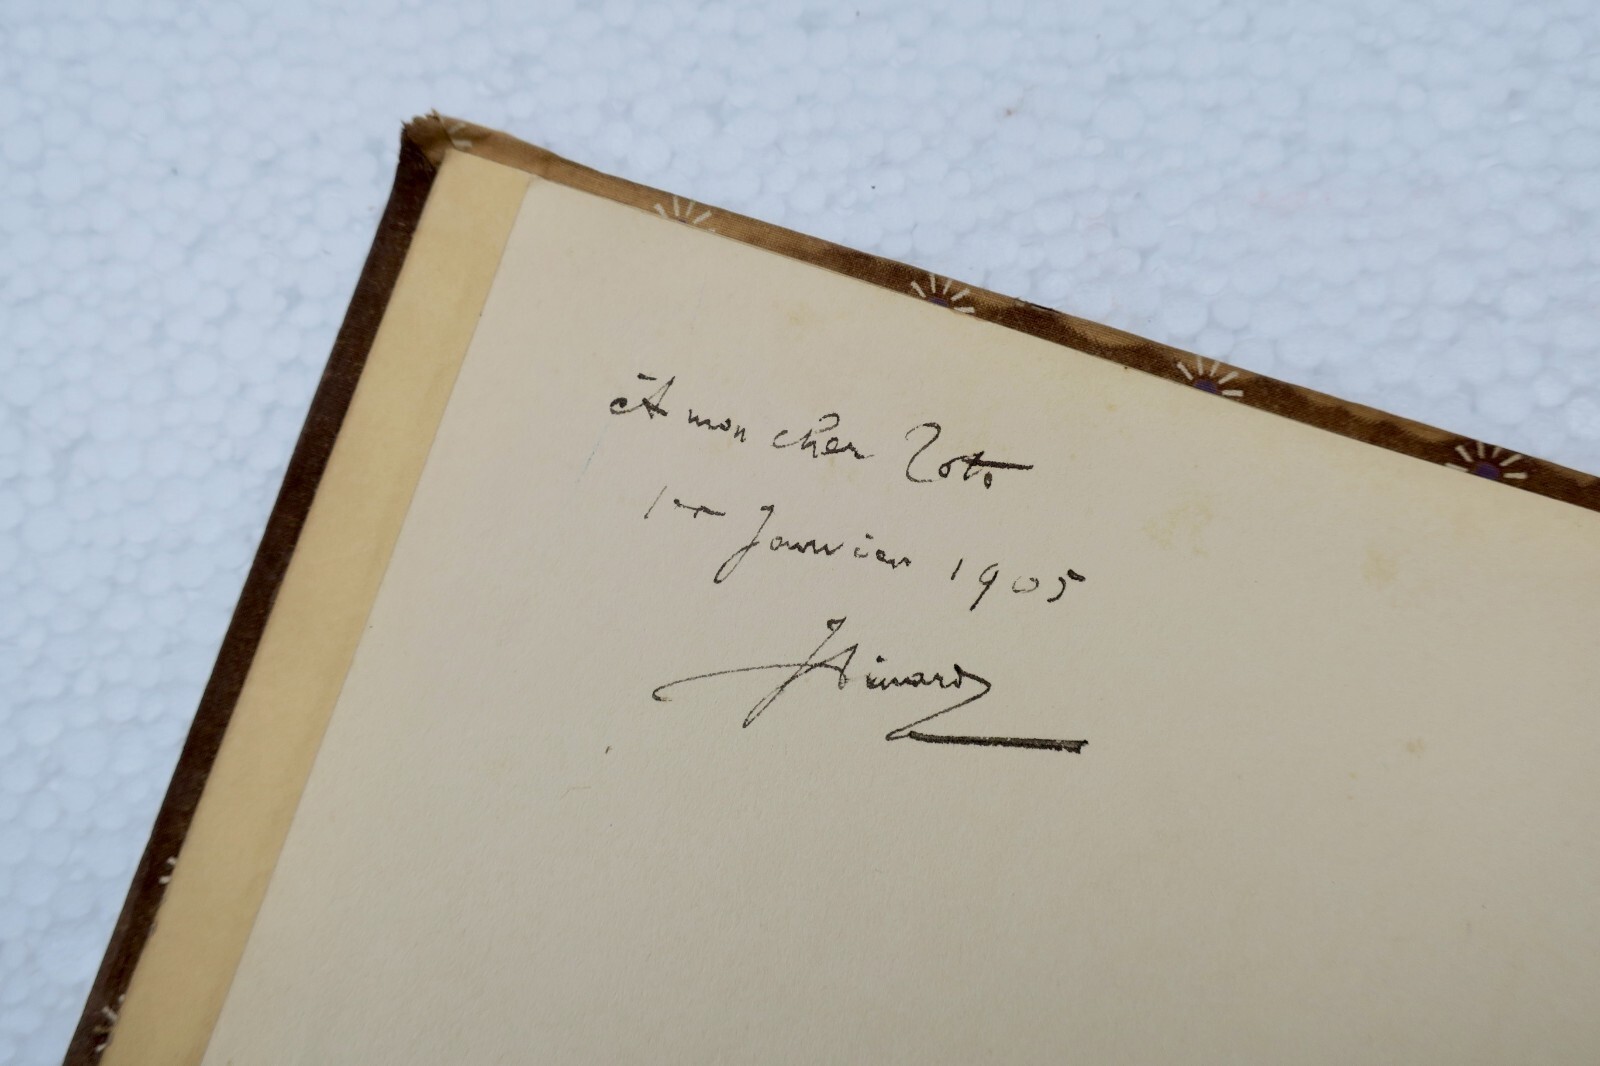 À mon cher Toto
1er Janvier 1905